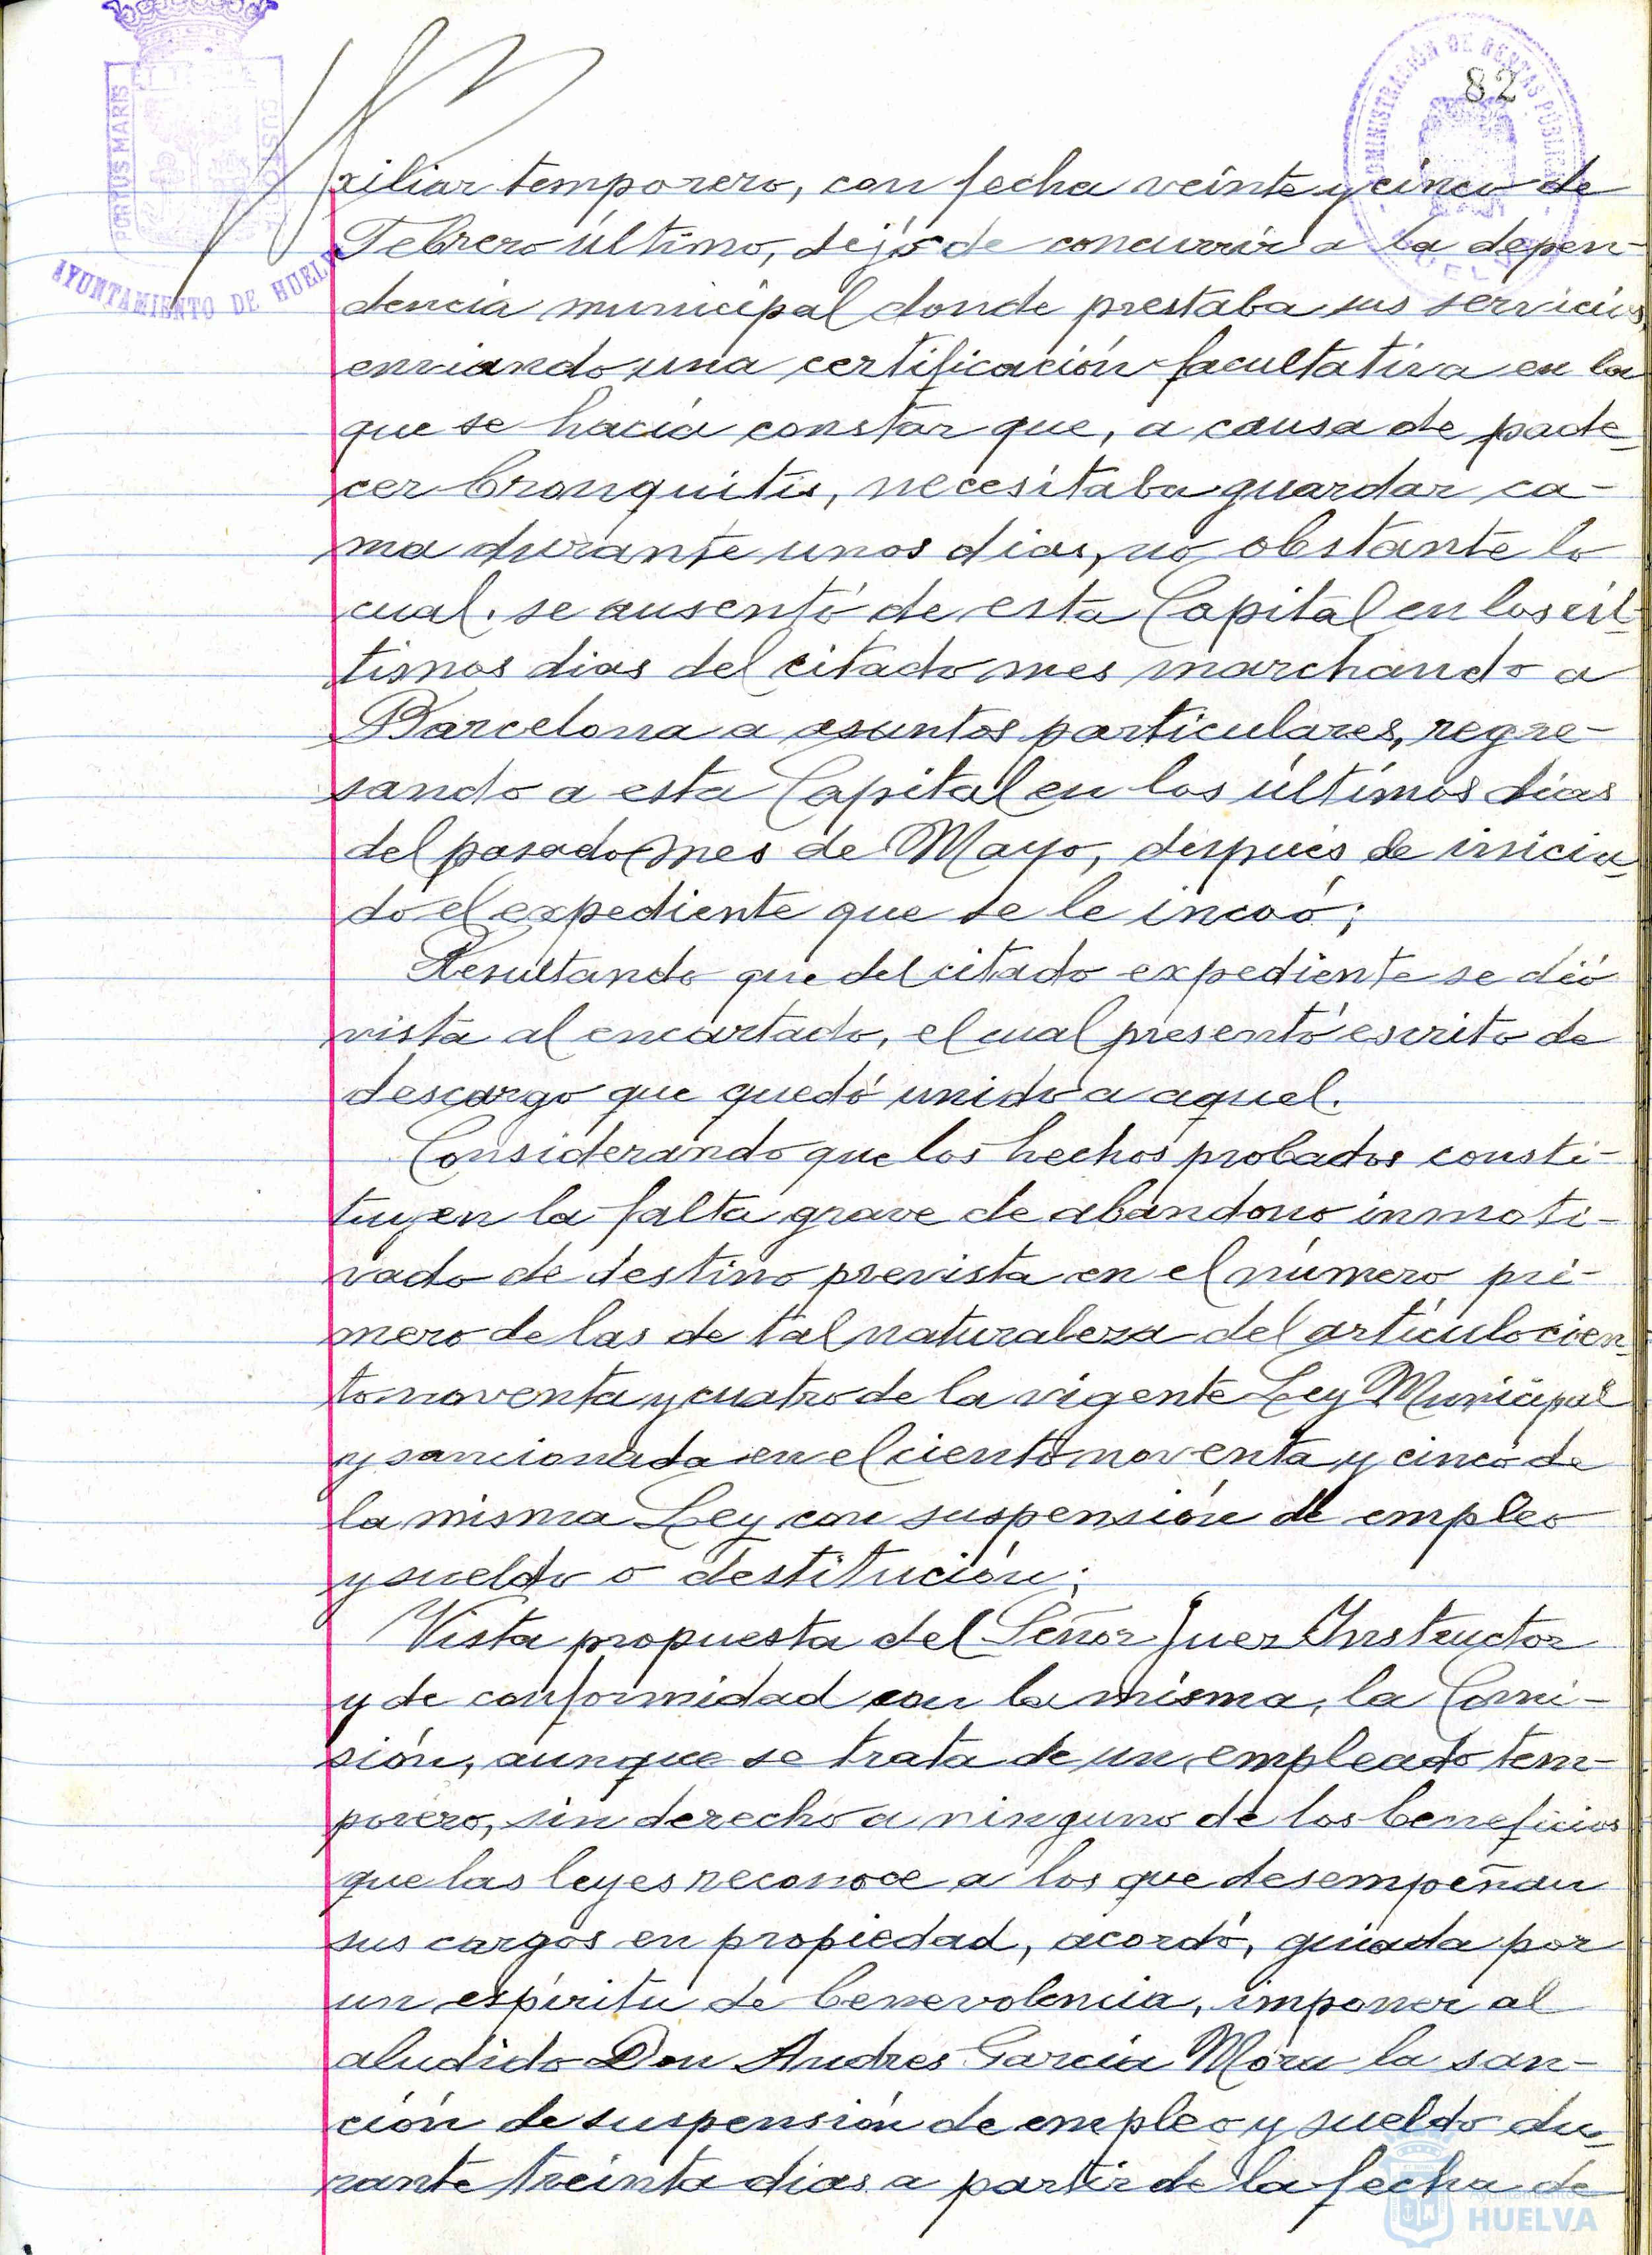 82
PORTUS MARIS
ET TERRAE
CUSTODIA
AYUNTAMIENTO DE HUELVA
ADMINISTRACIÓN DE RENTAS PÚBLICAS
HUELVA
xiliar temporero, con fecha veinte y cinco de
Febrero último, dejó de concurrir a la depen-
dencia municipal donde prestaba sus servicios
enviando una certificación facultativa en la
que se hacía constar que, a causa de pade-
cer bronquitis, necesitaba guardar ca-
ma durante unos dias, no obstante lo
cual, se ausentó de esta Capital en los úl-
timos dias del citado mes marchando a
Barcelona a asuntos particulares, regre-
sando a esta Capital en los últimos dias
del pasado mes de Mayo, después de inicia-
do el expediente que se le incoó;
Resultando que del citado expediente se dió
vista al encartado, el cual presentó escrito de
descargo que quedó unido a aquel.
Considerando que los hechos probados consti-
tuyen la falta grave de abandono inmoti-
vado de destino prevista en el número pri-
mero de las de tal naturaleza del artículo cien-
to noventa y cuatro de la vigente Ley Municipal
y sancionada en el ciento noventa y cinco de
la misma Ley con suspensión de empleo
y sueldo o destitución;
Vista propuesta del Señor Juez Instructor
y de conformidad con la misma, la Comi-
sión, aunque se trata de un empleado tem-
porero, sin derecho a ninguno de los beneficios
que las leyes reconoce a los que desempeñan
sus cargos en propiedad, acordó, guiada por
un espíritu de benevolencia, imponer al
aludido Don Andres García Mora la san-
ción de suspensión de empleo y sueldo du-
rante treinta dias a partir de la fecha de
Ayuntamiento de
HUELVA